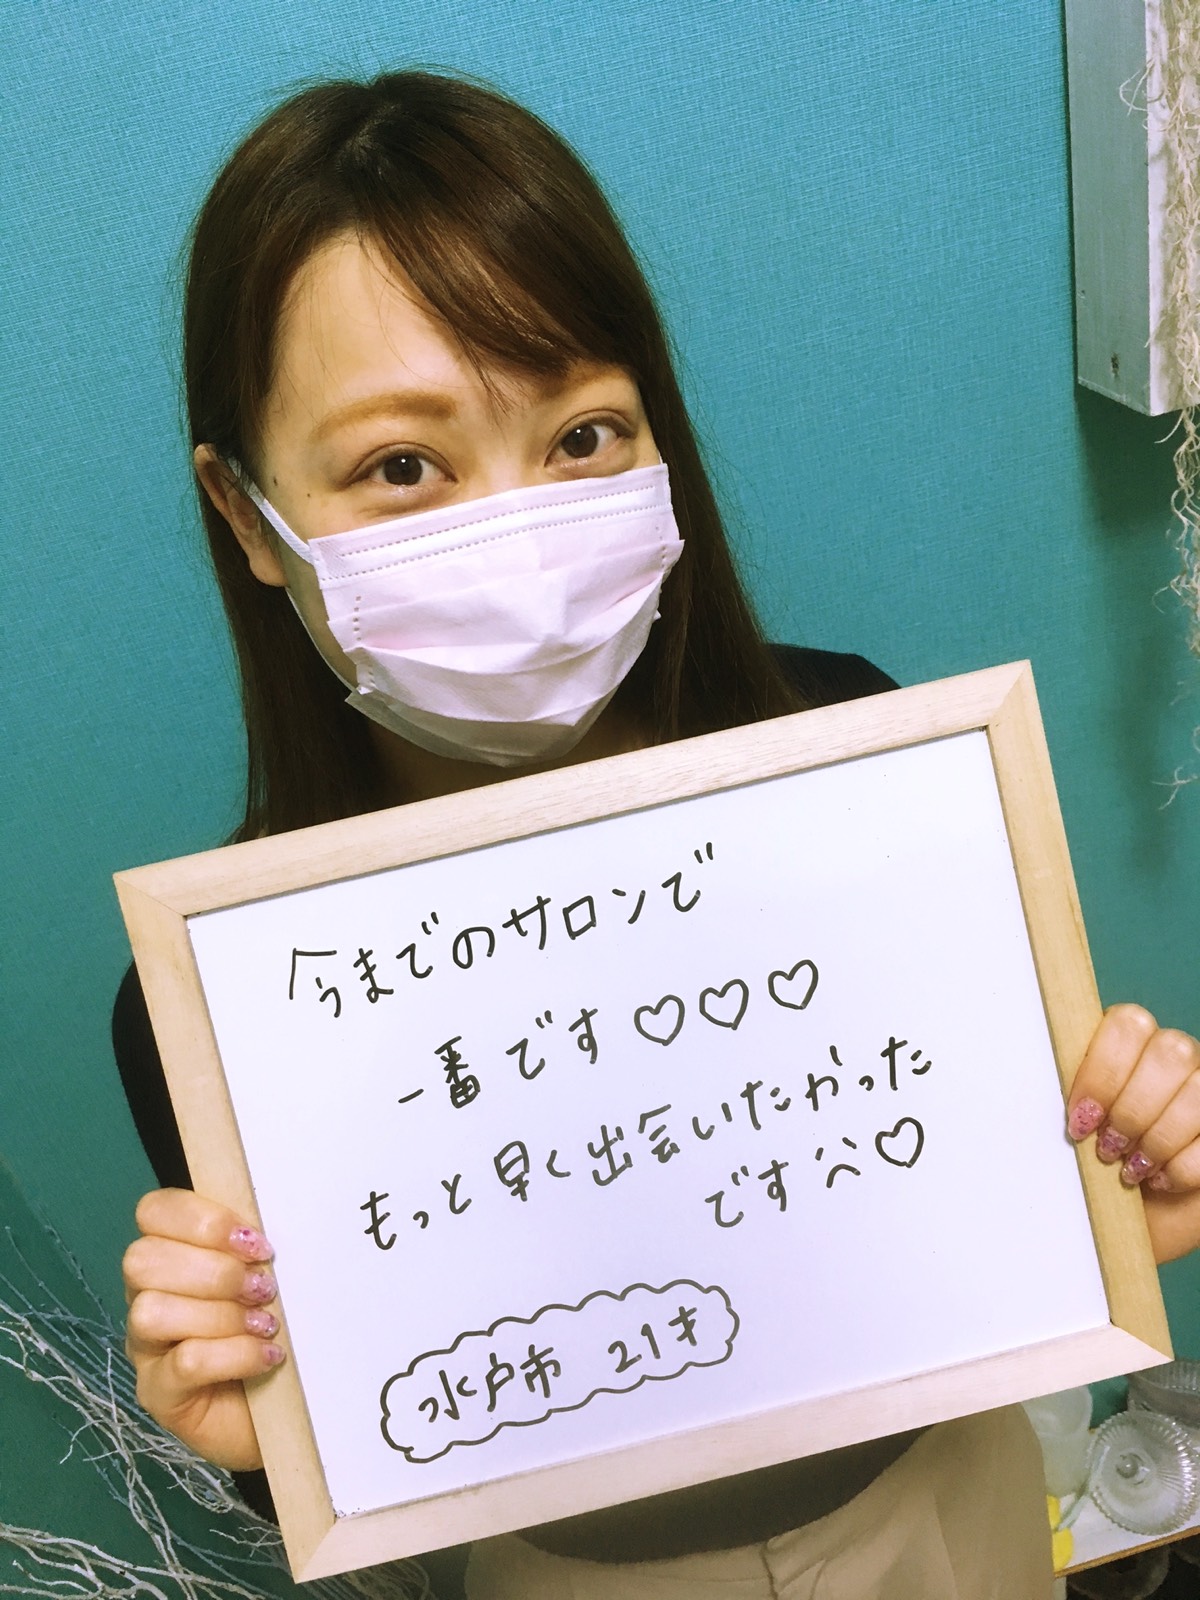 今までのサロンで
一番です♡♡♡
もっと早く出会いたかった
です^^♡
水戸市 21才